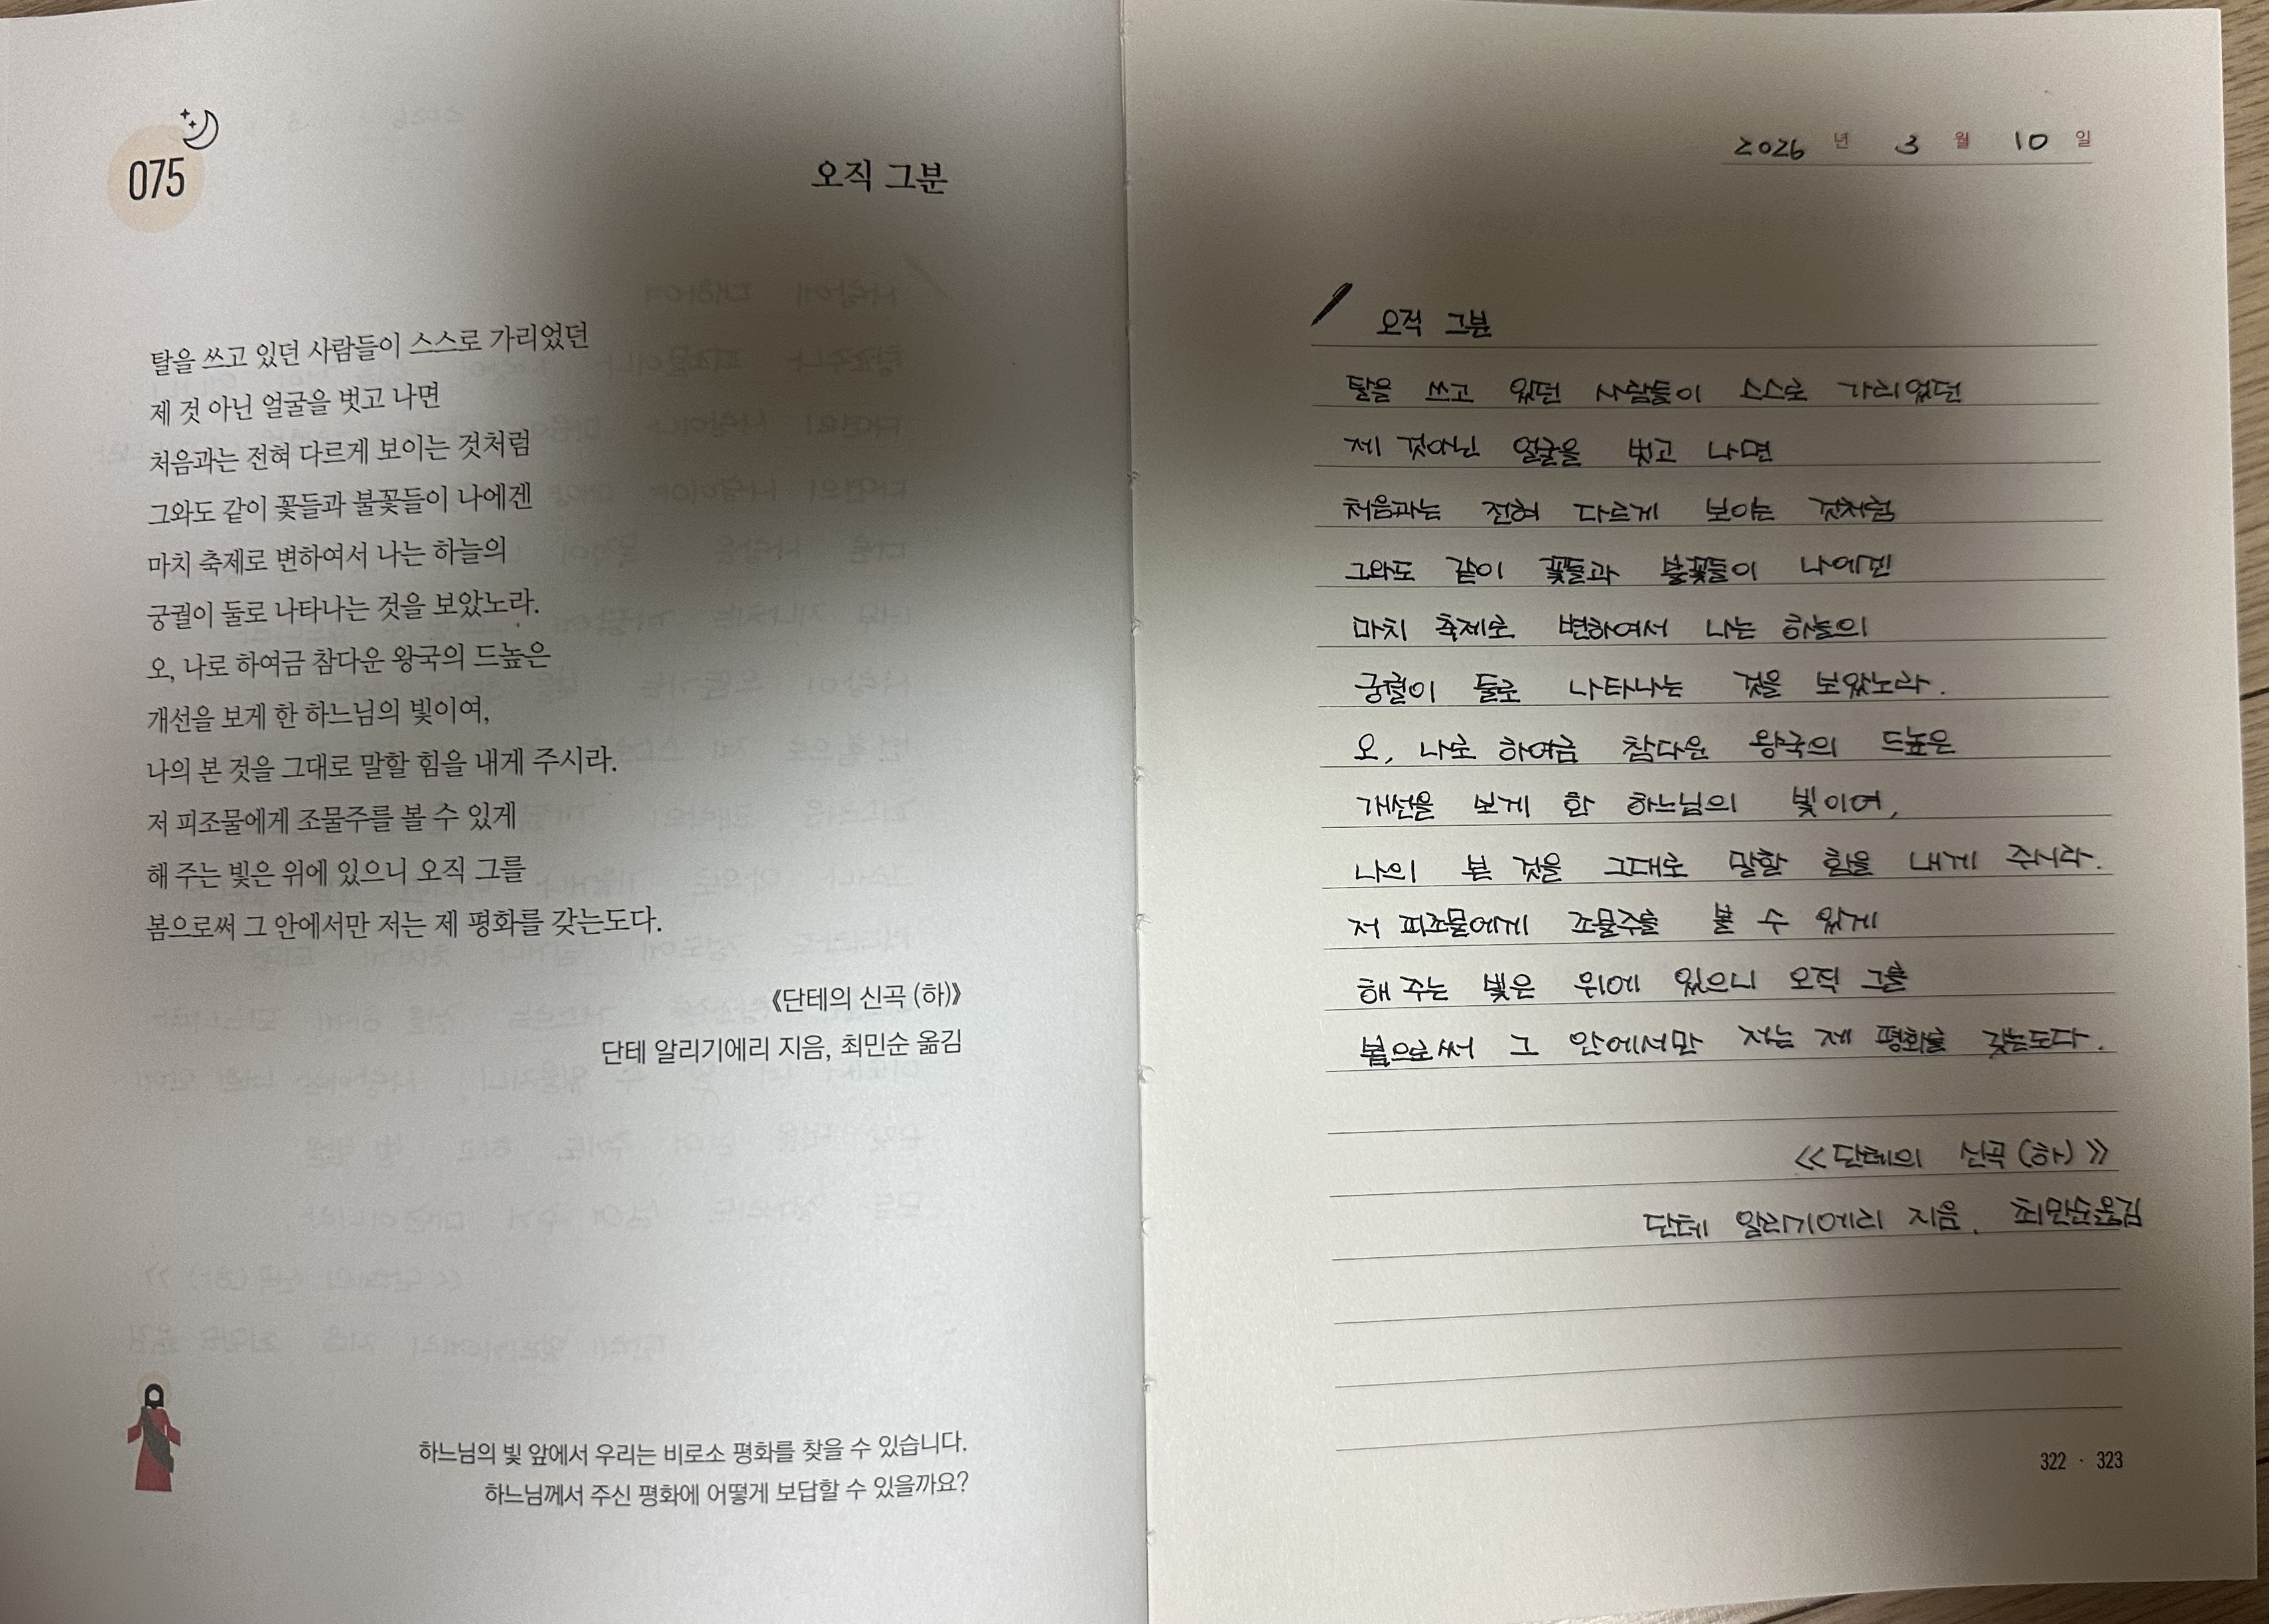 075
오직 그분
탈을 쓰고 있던 사람들이 스스로 가리었던
제 것 아닌 얼굴을 벗고 나면
처음과는 전혀 다르게 보이는 것처럼
그와도 같이 꽃들과 불꽃들이 나에겐
마치 축제로 변하여서 나는 하늘의
궁궐이 둘로 나타나는 것을 보았노라.
오, 나로 하여금 참다운 왕국의 드높은
개선을 보게 한 하느님의 빛이여,
나의 본 것을 그대로 말할 힘을 내게 주시라.
저 피조물에게 조물주를 볼 수 있게
해 주는 빛은 위에 있으니 오직 그를
봄으로써 그 안에서만 저는 제 평화를 갖는도다.
《단테의 신곡 (하)》
단테 알리기에리 지음, 최민순 옮김
하느님의 빛 앞에서 우리는 비로소 평화를 찾을 수 있습니다.
하느님께서 주신 평화에 어떻게 보답할 수 있을까요?
2026 년 3 월 10 일
오직 그분
탈을 쓰고 있던 사람들이 스스로 가리었던
제 것아닌 얼굴을 벗고 나면
처음과는 전혀 다르게 보이는 것처럼
그와도 같이 꽃들과 불꽃들이 나에겐
마치 축제로 변하여서 나는 하늘의
궁궐이 둘로 나타나는 것을 보았노라.
오, 나로 하여금 참다운 왕국의 드높은
개선을 보게 한 하느님의 빛이여,
나의 본 것을 그대로 말할 힘을 내게 주시라.
저 피조물에게 조물주를 볼 수 있게
해 주는 빛은 위에 있으니 오직 그를
봄으로써 그 안에서만 저는 제 평화를 갖는도다.
《단테의 신곡 (하)》
단테 알리기에리 지음, 최민순옮김
322 · 323